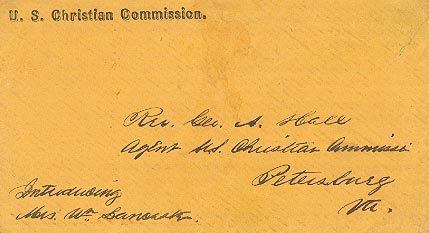 U. S. Christian Commission.
Rev. Geo. A. Hall
Agent U.S. Christian Commissi
Petersburg
Va.
Introducing
Mrs. Wm